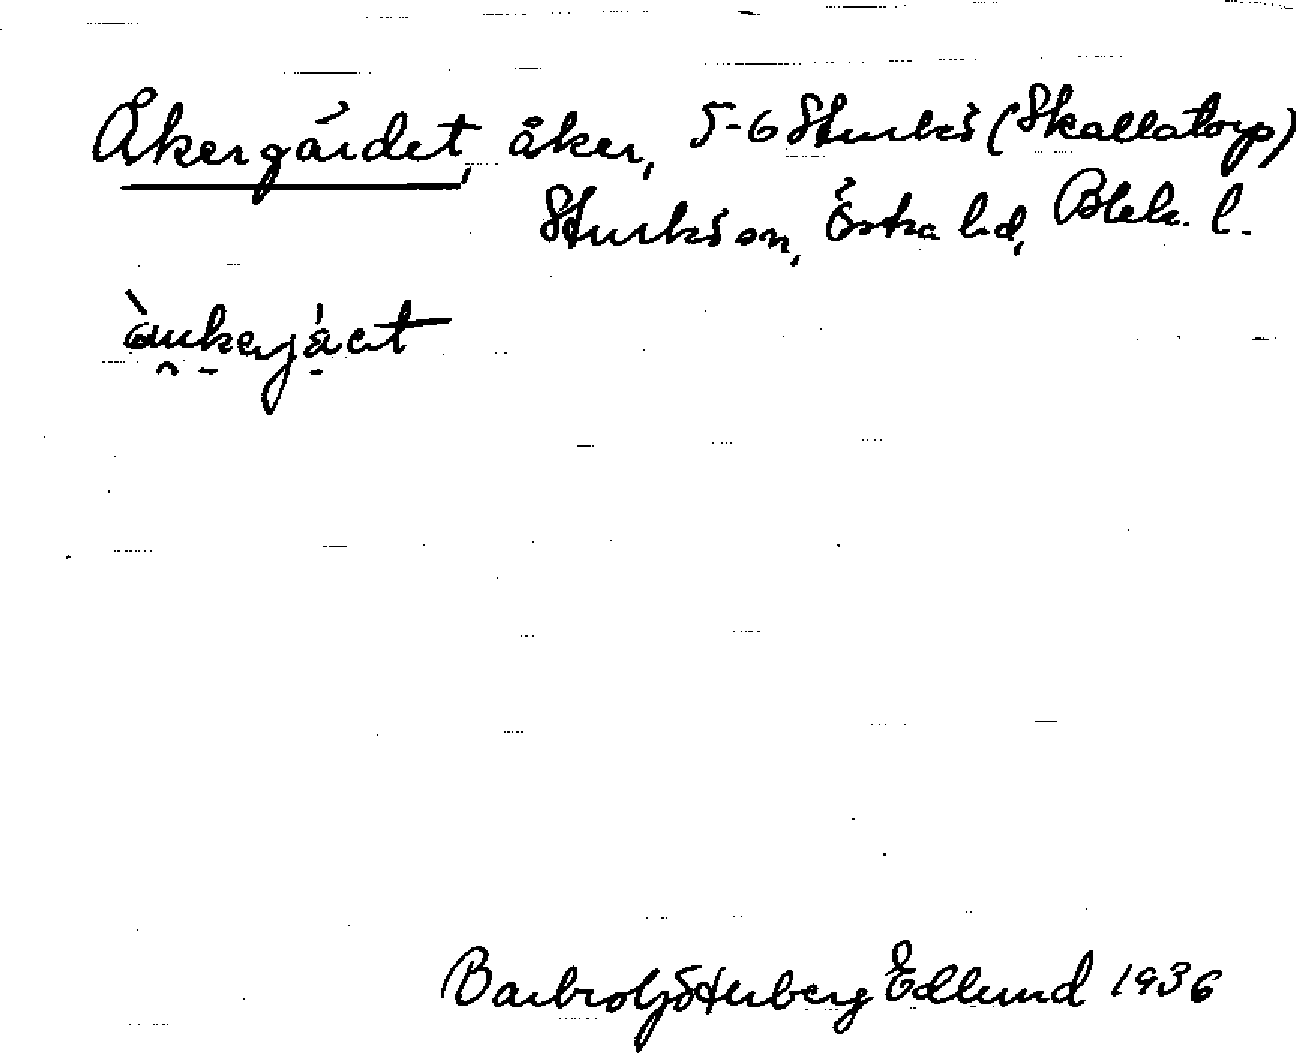 Åkergärdet, åker, 5-6 Sturkö (Skallatorp)
Sturkö sn, Östra hd, Blek. l.
Barbro Götterberg Edlund 1936